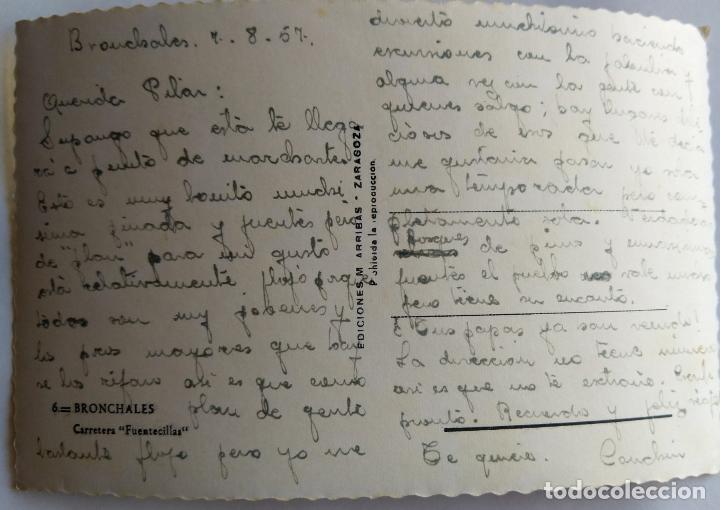 Bronchales. 7. 8. 57.
Querida Pilar:
Supongo que esta te llega
rá a punto de marcharte.
Esto es muy bonito muchi
sima pinada y fuentes pero
de "plan" para mi gusto
está relativamente flojo
todos son muy jovenes y
los pros mayores que hay
se los rifan así es que como
plan de gente
bastante flojo pero yo me
6.= BRONCHALES
Carretera "Fuentecillas"
EDICIONES M. ARRIBAS - ZARAGOZA
Prohibida la reproducción.
divierto muchisimo haciendo
excursiones con la familia y
alguna vez con la gente con
quienes salgo; hay lugares deli
ciosos de esos que te decia
me gustaria pasar yo sola
una temporada pero com
pletamente sola.
bosques de pinos y
fuentes el pueblo no vale mucho
pero tiene su encanto.
Tus papas ya san
La direccion no tiene número
asi es que no te extrañe.
pronto. Recuerdo y feliz viaje
Te quiere. Conchin
todocoleccion.net